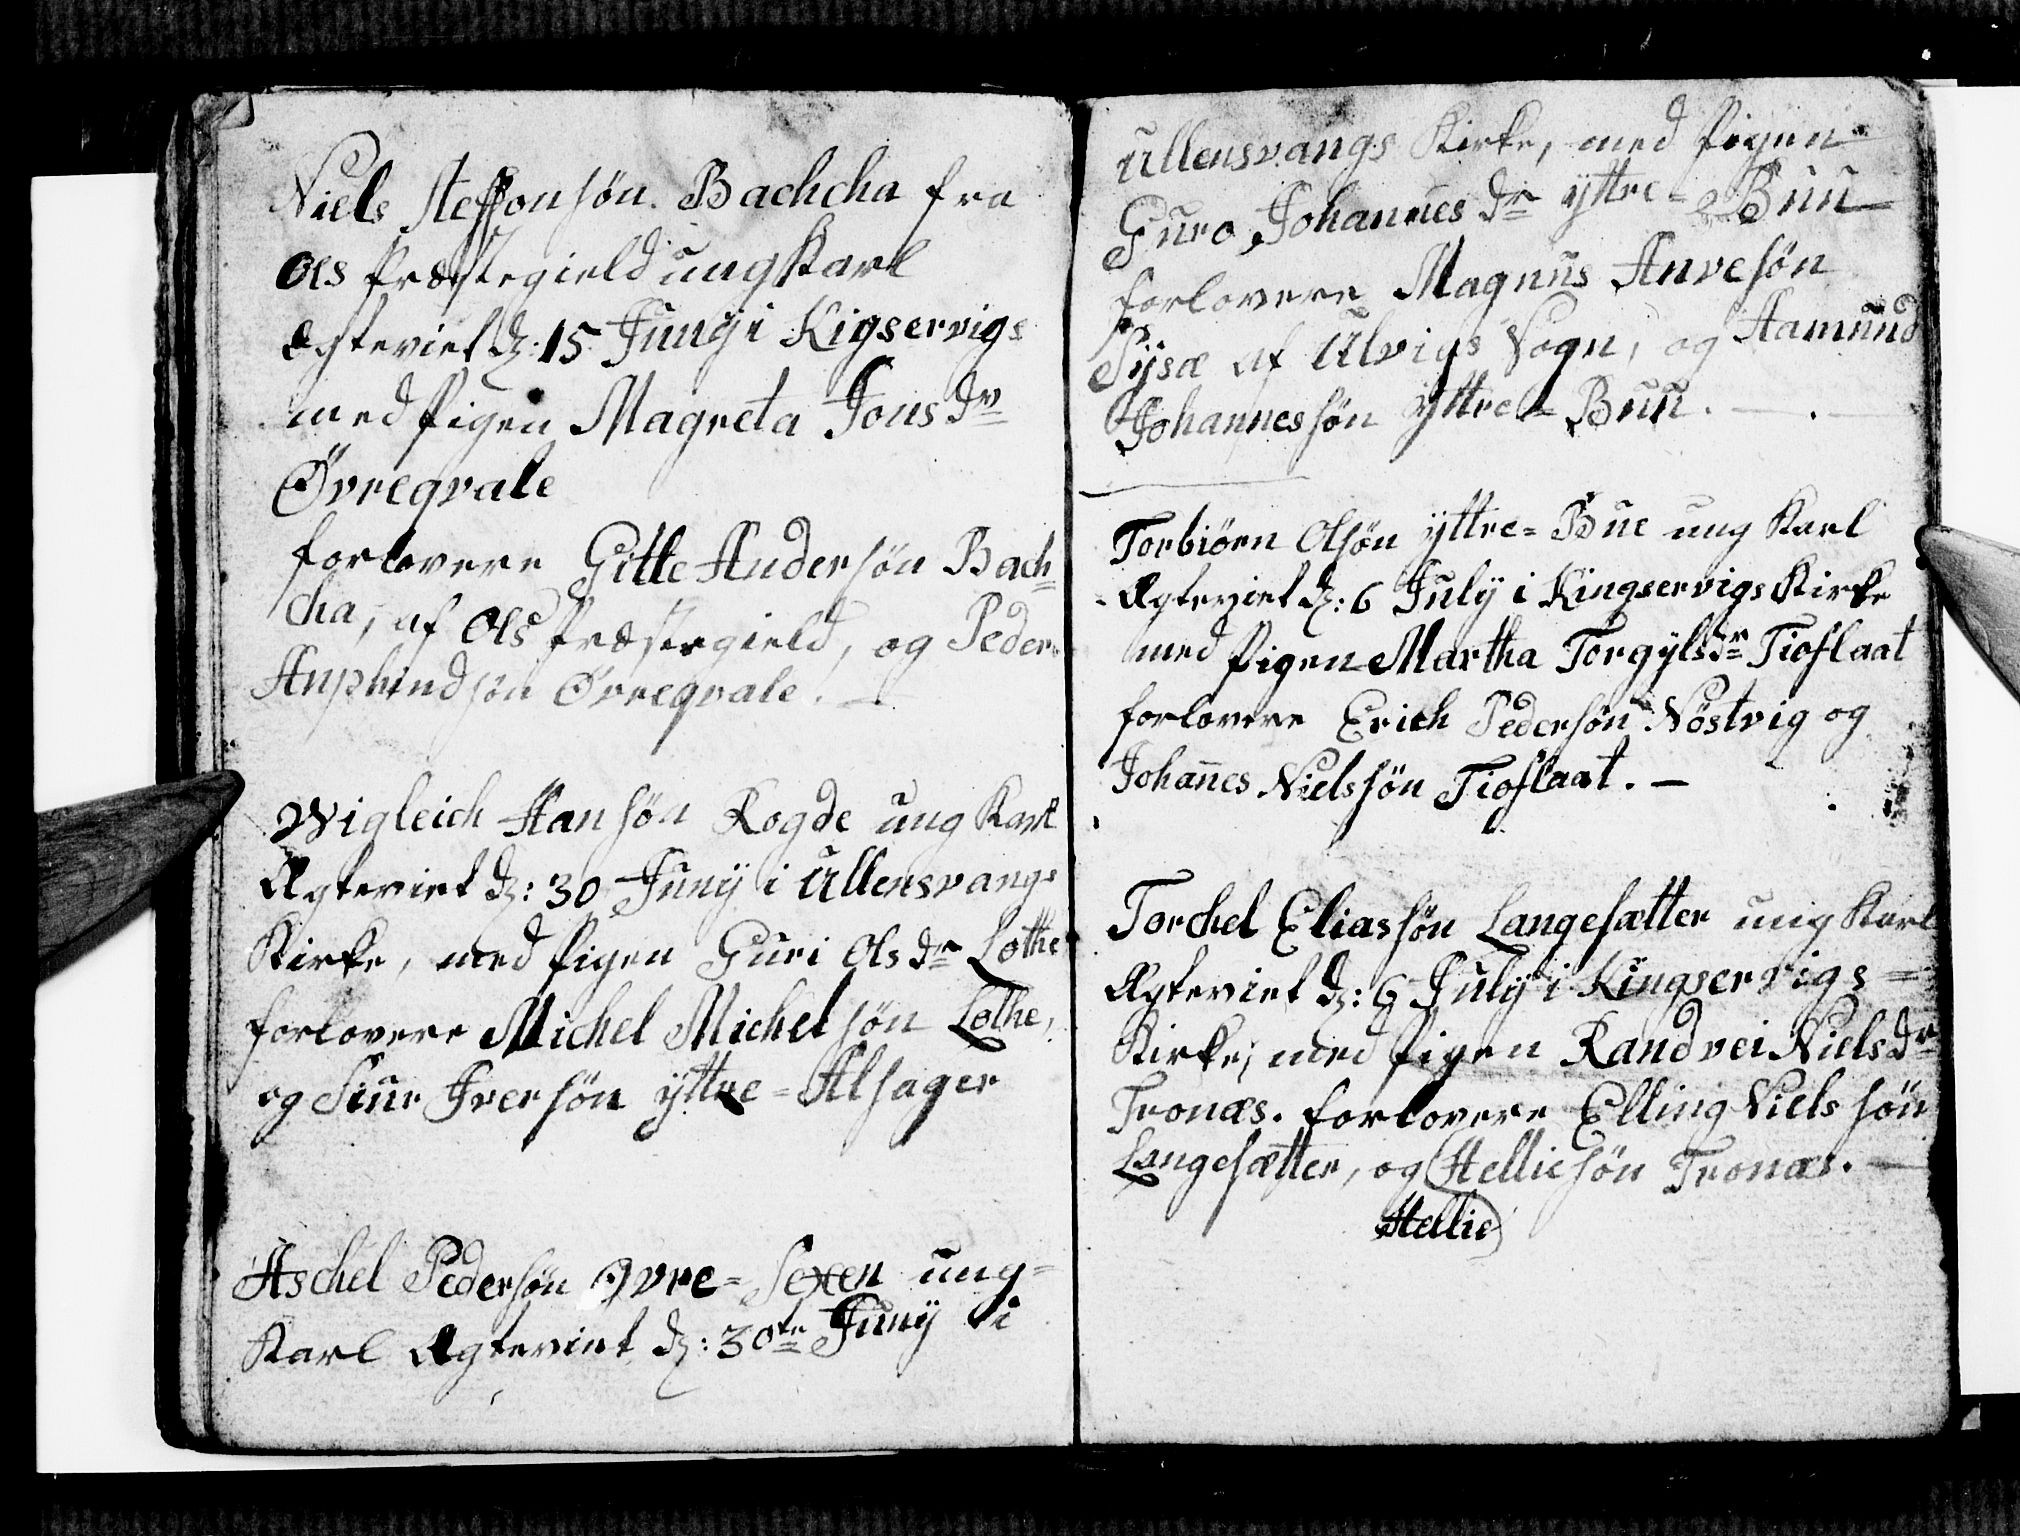 Niels Steffonsøn Bachcha fra
Ols Præstegield ung Karl
Ægteviet d: 15 Junÿ i Kigservigs
med Pigen Magreta Jons dr
Øvreqvale
forlovere Gitle Andersøn Bach=
cha, af Ols Præstegield, og Peder
Anphindsøn Øvreqvale. —
Wigleich Hansøn Rogde ung Karl
Ægteviet d: 30 Junÿ i Ullensvangs
Kirke, med Pigen Guri Ols dr Lothe
forlovere Michel Michelsøn Lothe,
og Siur Iversøn yttre=Alsager
Aschel Pedersøn Øvre=Sexen ung=
Karl Ægteviet d: 30te Junÿ i
Ullensvangs Kirke, med Pigen
Guro Johannes dr yttre=Buu
forlovere Magnus Anvesøn
Sÿsæ af Ulvigs Sogn, og Aamund
Johannessøn yttre=Buu. — . —
Torbiørn Olsøn yttre=Bue ung Karl
Ægteviet d: 6 Julÿ i Kingservigs Kirke
med Pigen Martha Torgÿls dr Tioflaat
forlovere Erich Pedersøn Nöstvig og
Johannes Nielssøn Tioflaat. —
Torchel Eliassøn Langesætter ung Karl
Ægteviet d: 6 Julÿ i Kingservigs=
Kirke, med Pigen Randvei Niels dr
Tronæs. forlovere Elling Nielssøn
Langesætter, og Helliesøn Tronæs. —
Hellie